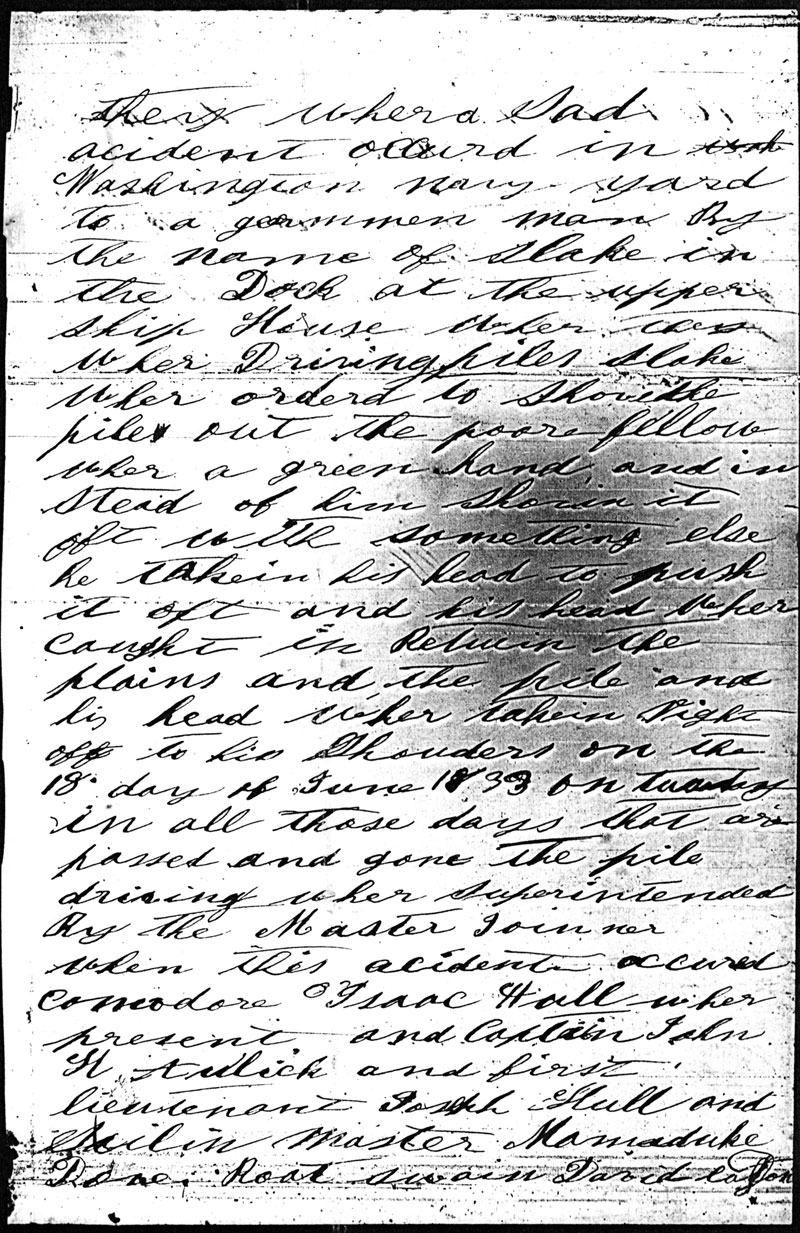 ther wher a Sad
acident occurd in
Washington navy yard
to a germmen man By
the name of Slake in
the Dock at the upper
ship House wher
wher Driving piles Slake
wher orderd to shove the
piles out the poore fellow
wher a green hand and in
stead of him shovin it
oft with something else
he takein his head to push
it oft and his head wher
caught in Betwin the
plains and the pile and
his head wher takein Right
off to his Shouders on the
18 day of June 1833 on tuesday
in all those days that are
passed and gone the pile
driving wher superintended
By the Master Joinner
when this acident occured
comodore Isaac Hull wher
present and Captin John
H Aulick and first
lieutenant Joseph Hull and
Sailin Master Mamaduke
Dove. Boat swain David eaton